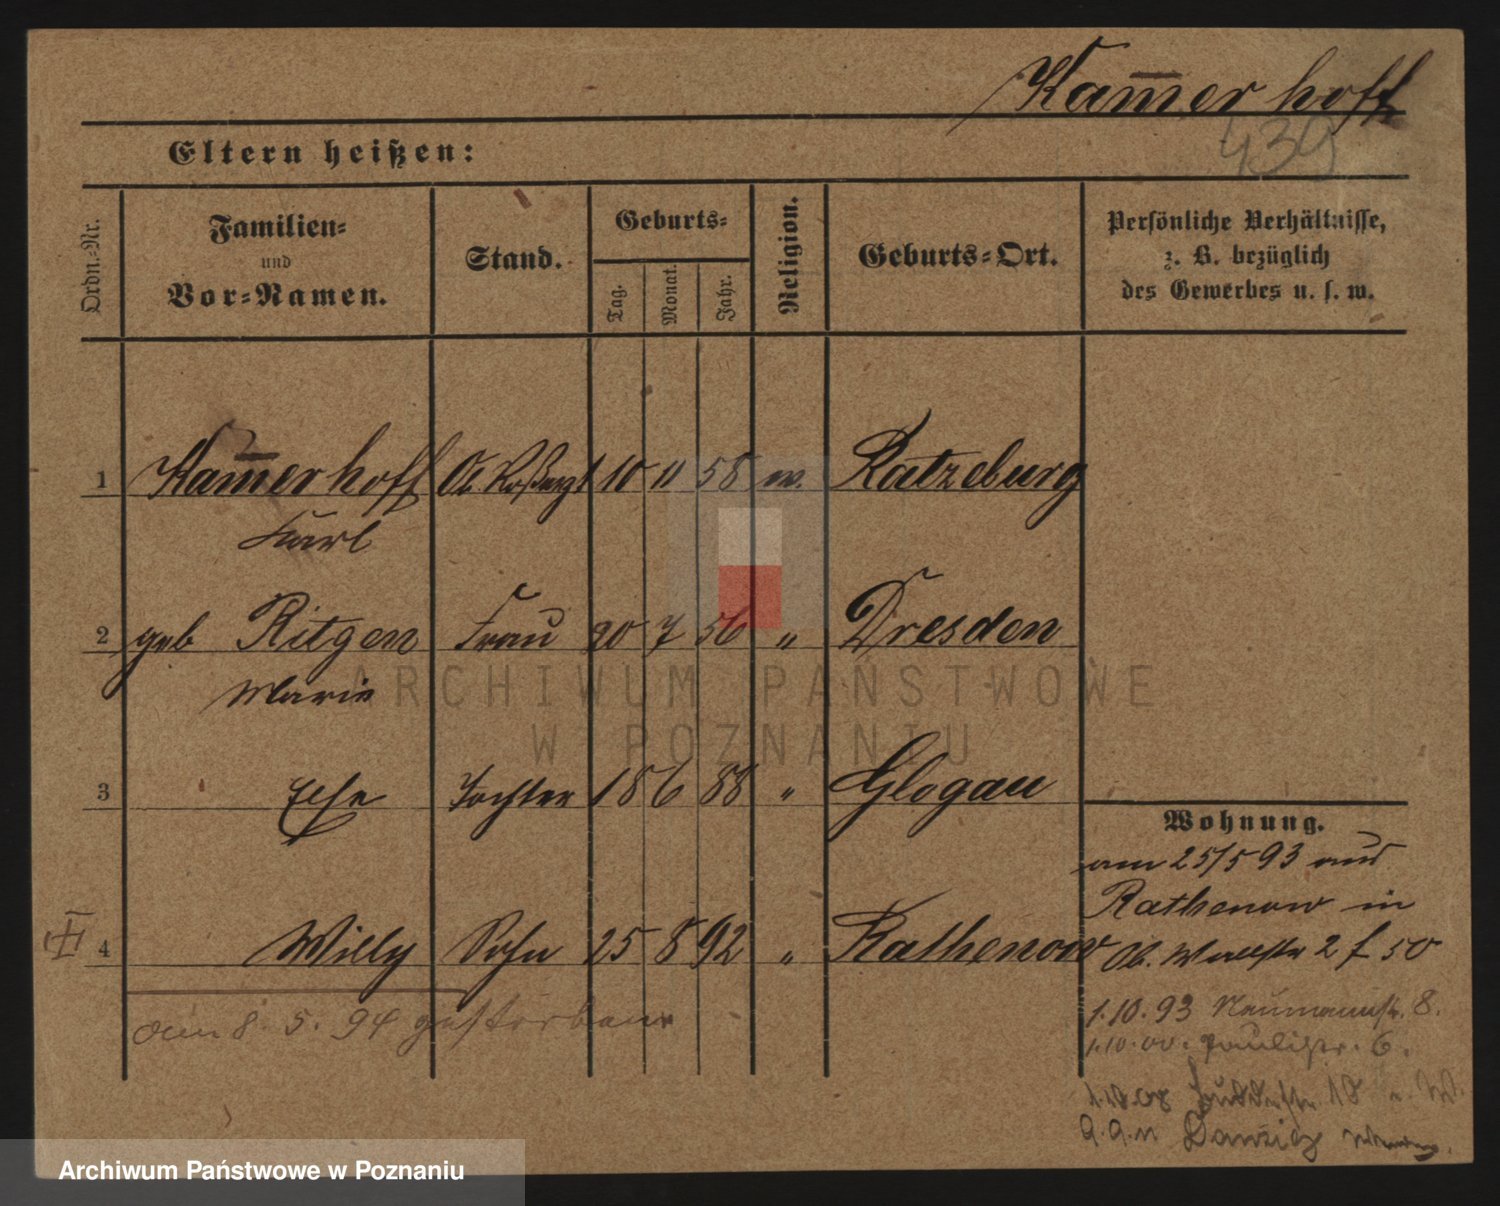 Kam̅erhoff
439
Eltern heißen:
Ordn.-Nr.
Familien-
und
Vor-Namen.
Stand.
Geburts-
Tag.
Monat.
Jahr.
Religion.
Geburts-Ort.
Persönliche Verhältnisse,
z. B. bezüglich
des Gewerbes u. s. w.
1 Kam̅erhoff Ob. Roßarzt 10 11 58 ev. Ratzeburg
Karl
2 geb Ritgen Frau 20 7 56 „ Dresden
Marie
ARCHIWUM PAŃSTWOWE
W POZNANIU
3 Else Tochter 18 6 88 „ Glogau
Wohnung.
am 25/5 93 aus
Rathenow in
4 Willy Sohn 25 8 92 „ Rathenow
Ob. Wallstr 2 f 50
den 8. 5. 94 gestorben
1.10.93 Naumannstr. 8.
1.10.00. Paulistr. 6.
18
9.9.11 Danzig
Archiwum Państwowe w Poznaniu